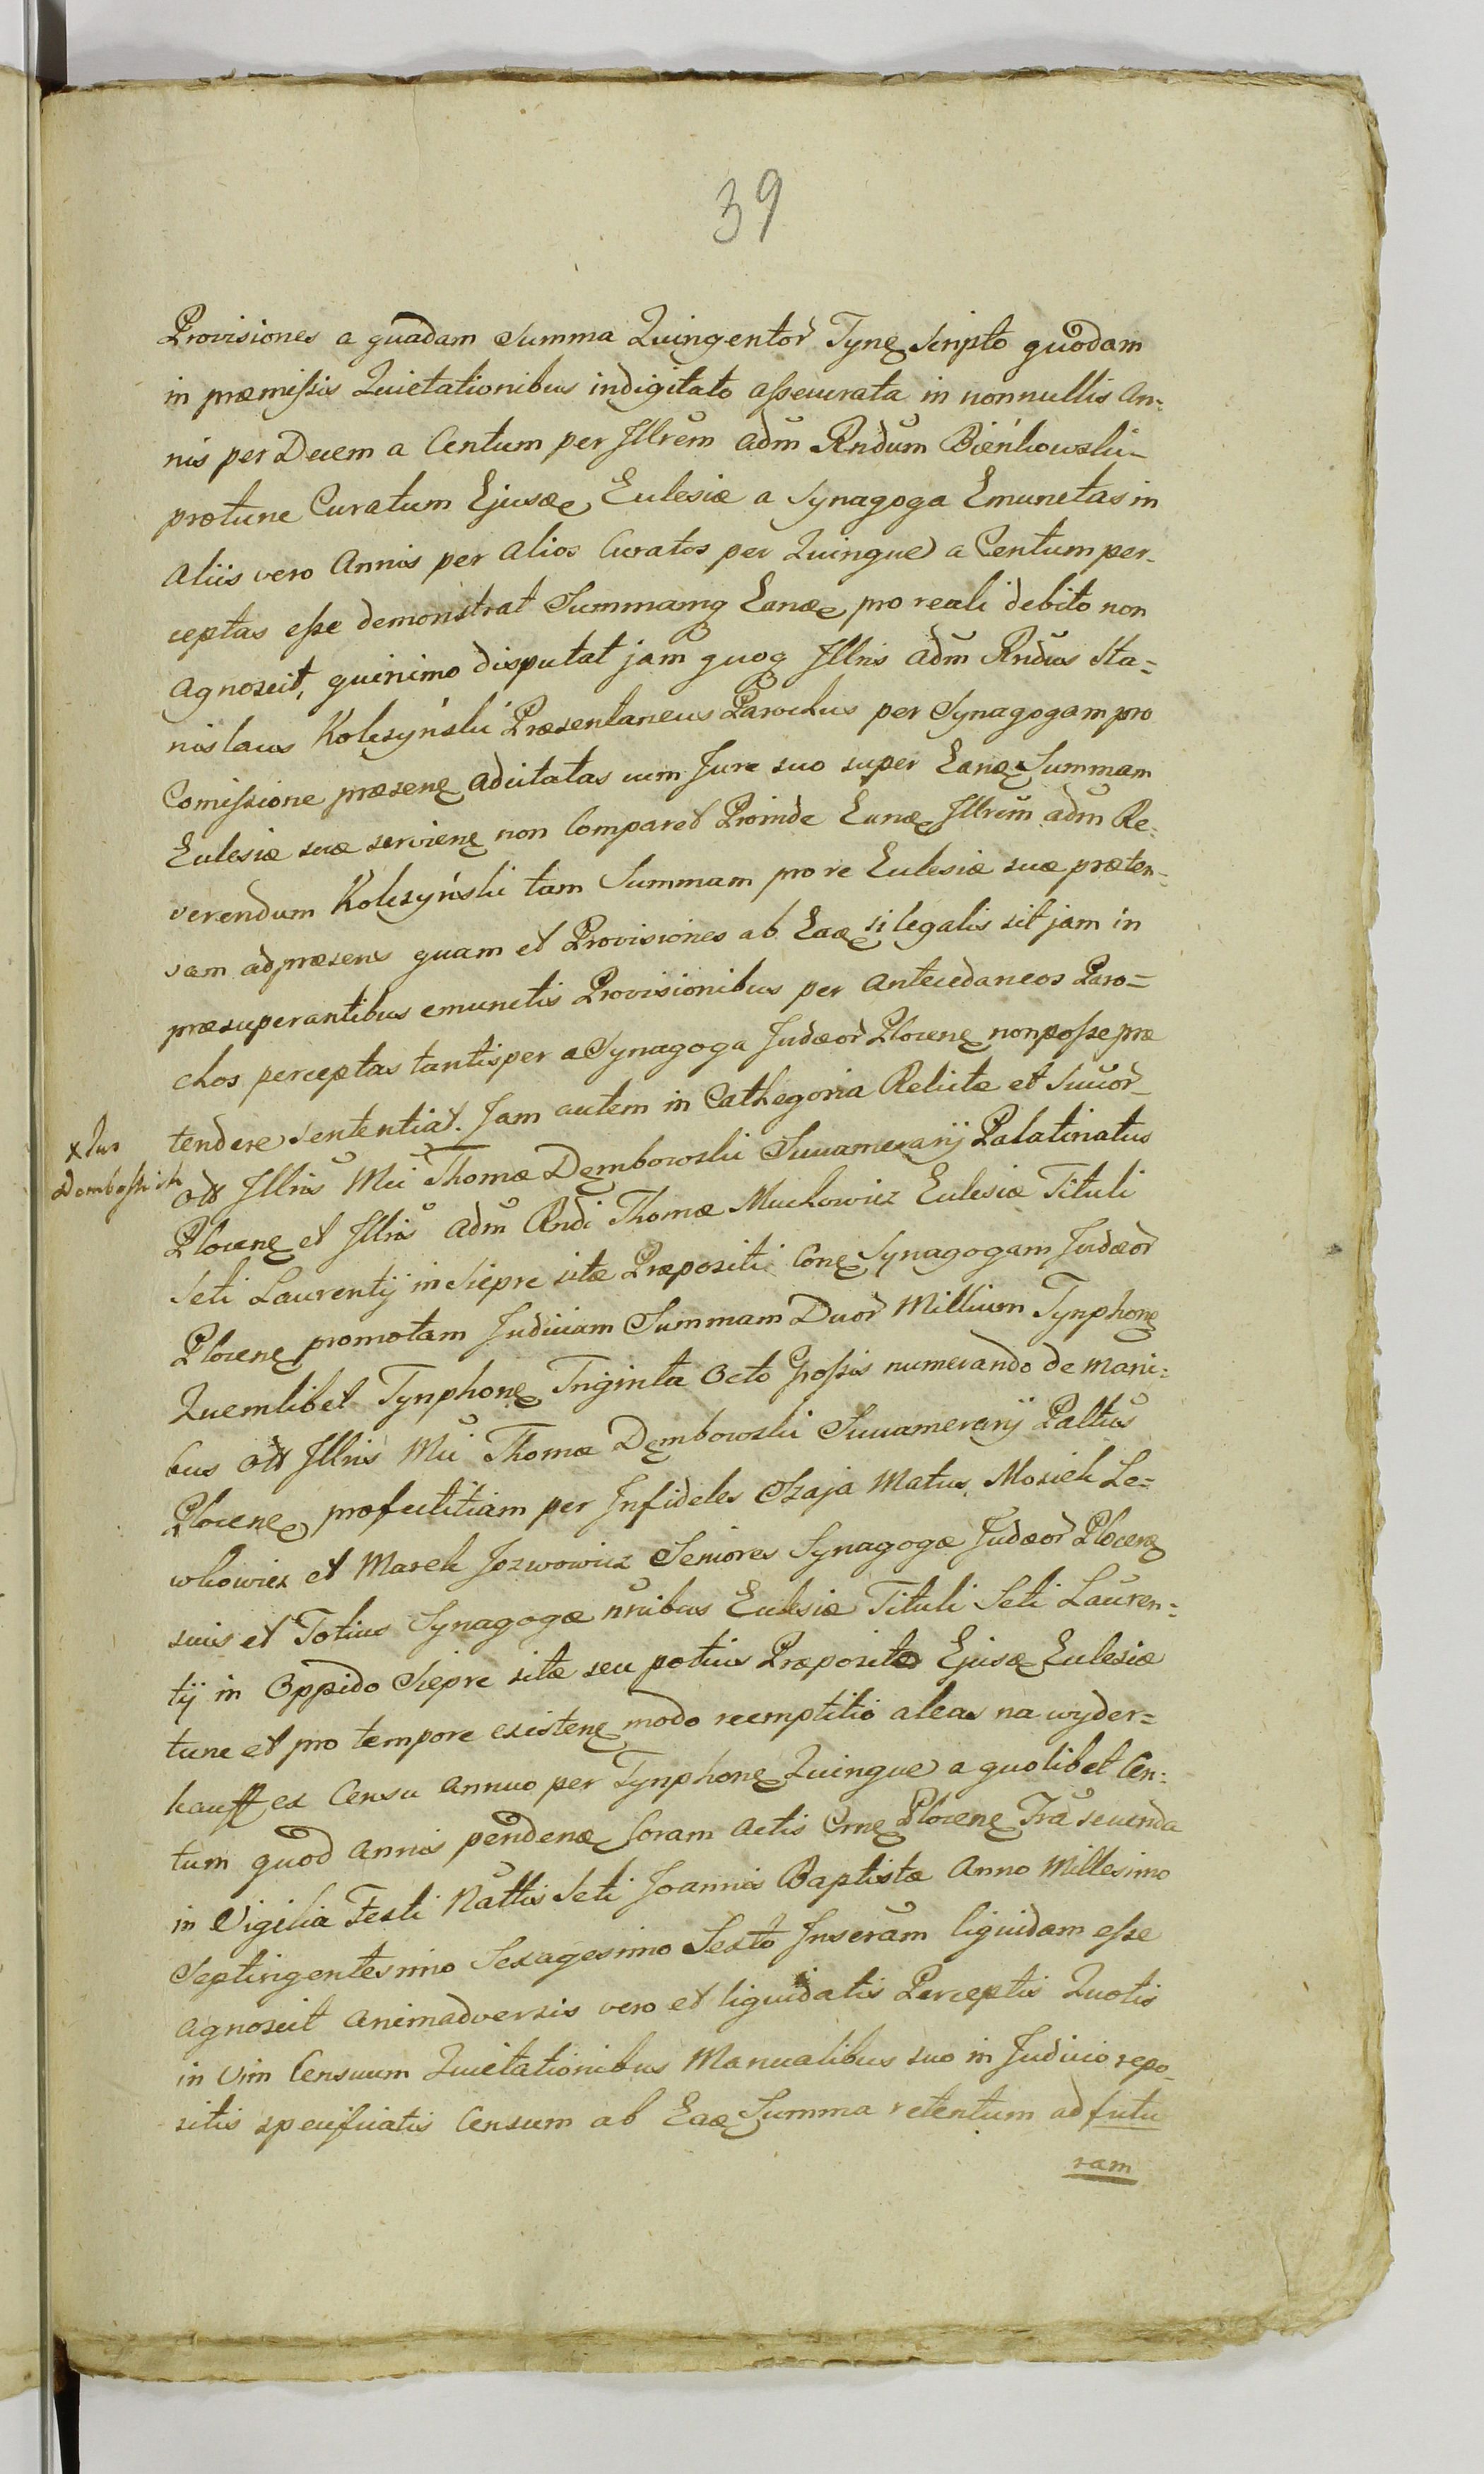 39
Provisiones a quadam Summa Quingentor̃ Tynę Scripto quodam
in præmissis Quietationibus indigitato assecurata in nonnullis An=
nis per Decem a Centum per Illrem adm̃ Rndum Bieńkowski
protunc Curatum Ejusdę Ecclesiæ a Synagoga Emunctas in
aliis vero Annis per alios Curatos per Quinque a Centum per-
ceptas esse demonstrat Summamq Eandę pro reali debito non
agnoscit, quinimo disputat jam quoq Illris adm̃ Rndus Sta=
nislaus Kolczyński Præsentaneus Parochus per Synagogam pro
Comissione præsenę adcitatus cum Jure suo super Eandę Summam
Ecclesiæ suæ servienę non Comparet Proinde Eundę Illrem adm̃ Re=
verendum Kolczyński tam Summam pro re Ecclesiæ suæ præten=
sam adpræsens quam et Provisiones ab Eadę si legalis sit jam in
præsuperantibus emunctis Provisionibus per antecedaneos Paro=
chos perceptas tantisper a Synagoga Judæor̃ Plocenę non posse præ
tendere sententiat. Jam autem in Cathegoria Relictæ et Succor̃
x Jus
Dombossich
olt Illris Mci Thomæ Dęmbowski Succamerarij Palatinatus
Plocenę et Illris adm̃ Rndi Thomæ Muchowicz Ecclesiæ Tituli
Scti Laurentij in Siepre sitæ Præpositi Conę Synagogam Judæor̃
Plocenę promotam Judiciam Summam Duor̃ Millium Tynphonę
Quemlibet Tynphonę Triginta Octo Grossis numerando de mani=
bus olt Illris Mci Thomæ Dęmbowski Succamerarij Paltus
Plocenę profectitiam per Infideles Szaja Matus, Mosiek Le=
wkowicz et Marek Jozwowicz Seniores Synagogæ Judæor̃ Plocenę
suis et Totius Synagogæ nn̄ibus Ecclesiæ Tituli Scti Lauren=
tij in Oppido Siepre sitæ seu potius Præposito Ejusdę Ecclesiæ
tunc et pro tempore existenę modo reemptitio alias na wyder=
kauff ex Censu annuo per Tynphonę Quinque a quolibet Cen=
tum quod annis pendendę Coram Actis Crnę Plocenę Fra̅ secunda
in Vigilia Festi Nattis Scti Joannis Baptistæ Anno Millesimo
Septingentesimo Sexagesimo Sexto Inscrãm liquidam esse
agnoscit animadversis vero et liquidatis Perceptis Quotis
in vim Censuum Quietationibus Manualibus suo in Judicio repo-
sitis specificatis Censum ab Eadę Summa retentum ad futu
ram